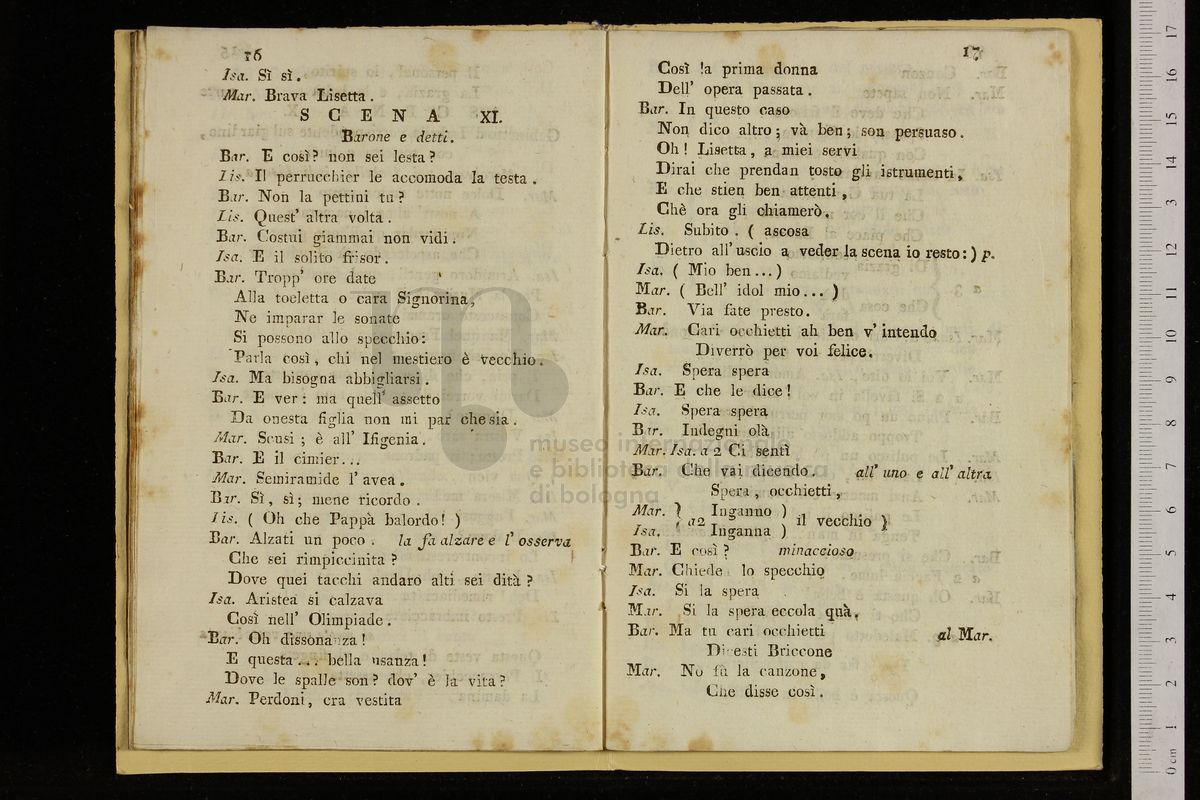 16
Isa. Sì sì.
Mar. Brava Lisetta.
SCENA XI.
Barone e detti.
Bar. E così? non sei lesta?
Lis. Il perrucchier le accomoda la testa.
Bar. Non la pettini tu?
Lis. Quest' altra volta.
Bar. Costui giammai non vidi.
Isa. E il solito frisor.
Bar. Tropp' ore date
Alla toeletta o cara Signorina,
Ne imparar le sonate
Si possono allo specchio:
Parla così, chi nel mestiero è vecchio.
Isa. Ma bisogna abbigliarsi.
Bar. E ver: ma quell' assetto
Da onesta figlia non mi par che sia.
Mar. Scusi; è all' Ifigenia.
Bar. E il cimier...
Mar. Semiramide l' avea.
Bar. Sì, sì; mene ricordo.
Lis. ( Oh che Pappà balordo! )
Bar. Alzati un poco. la fa alzare e l' osserva
Che sei rimpiccinita?
Dove quei tacchi andaro alti sei dità?
Isa. Aristea si calzava
Così nell' Olimpiade.
Bar. Oh dissonanza!
E questa... bella usanza!
Dove le spalle son? dov' è la vita?
Mar. Perdoni, era vestita
17
Così la prima donna
Dell' opera passata.
Bar. In questo caso
Non dico altro; và ben; son persuaso.
Oh! Lisetta, a miei servi
Dirai che prendan tosto gli istrumenti,
E che stien ben attenti,
Chè ora gli chiamerò.
Lis. Subito. ( ascosa
Dietro all' uscio a veder la scena io resto:) p.
Isa. ( Mio ben...)
Mar. ( Bell' idol mio... )
Bar. Via fate presto.
Mar. Cari occhietti ah ben v' intendo
Diverrò per voi felice.
Isa. Spera spera
Bar. E che le dice!
Isa. Spera spera
Bar. Indegni olà
Mar. Isa. a 2 Ci sentì
Bar. Che vai dicendo. all' uno e all' altra
Spera, occhietti,
Mar. } Inganno )
a2 il vecchio }
Isa. Inganna )
Bar. E così? minaccioso
Mar. Chiede lo specchio
Isa. Si la spera
Mar. Si la spera eccola quà,
Bar. Ma tu cari occhietti al Mar.
Dicesti Briccone
Mar. No fù la canzone,
Che disse così.
museo internazionale
e biblioteca della musica
di bologna
0 cm 1 2 3 4 5 6 7 8 9 10 11 12 13 14 15 16 17